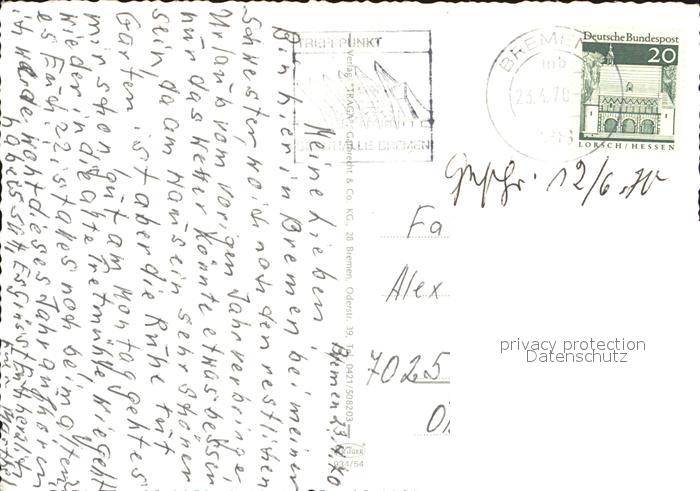 Bremen 23.4.70
Meine Lieben!
Bin hier in Bremen bei meiner
Schwester, wo ich noch den restlichen
Urlaub vom vorigen Jahr verbringe,
nur das Wetter könnte etwas besser
sein, da am Haus ein sehr schönen
Garten ist, aber die Ruhe tut
mir schon gut, am Montag geht es
wieder in die alte Tretmühle, wie geht
es Euch
ist alles noch beim alten
ich werde wohl dieses Jahr
Es grüsst Euch herzlich
TREFFPUNKT
STADTHALLE BREMEN
BREMEN
23.4.70
Deutsche Bundespost
20
LORSCH/HESSEN
12/6.70
Fa
Alex
7025
privacy protection
Datenschutz
Verlag "TRAGA" & Co. KG., 28 Bremen, Oderstr. 39, Tel. 0421/508203
934/54